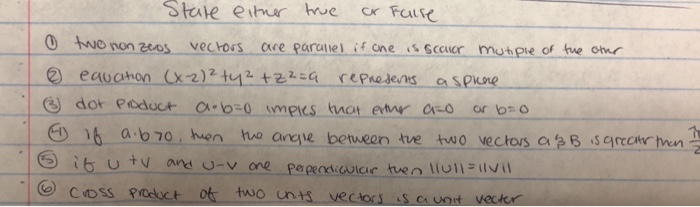 State either true or False
① two non zeros vectors are parallel if one is scalar mutiple of the other
② equation (x-z)²+y²+z²=9 represents a sphere
③ dot product a·b=0 implies that either a=0 or b=0
④ if a·b>0, then the angle between the two vectors a & B is greater than π/2
⑤ if u+v and u-v are perpendicular then ||u||=||v||
⑥ cross product of two units vectors is a unit vector